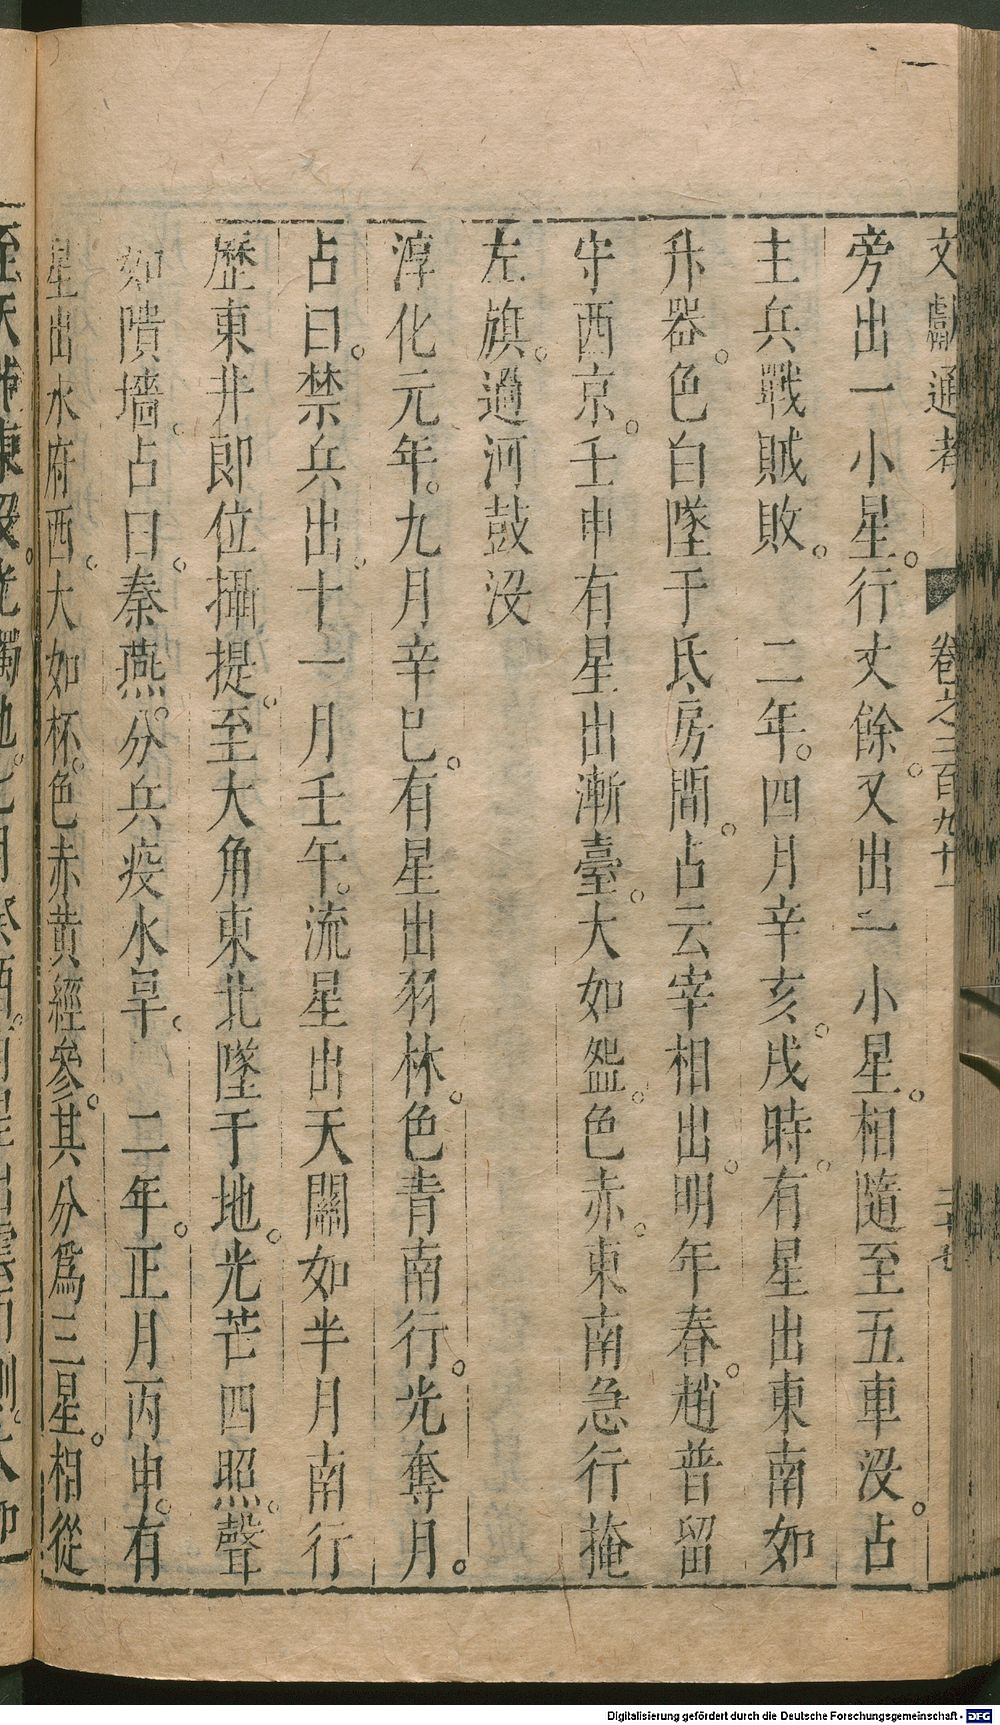 文獻通考 卷之二百九十一
旁出一小星。行丈餘。又出二小星。相隨至五車沒。占
主兵戰賊敗。 二年。四月辛亥。戌時。有星出東南如
升器。色白墜于氐房間。占云宰相出。明年春。趙普留
守西京。壬申有星出漸臺。大如盌。色赤。東南急行掩
左旗。過河鼓沒
淳化元年。九月辛巳。有星出羽林。色青南行。光奪月。
占曰。禁兵出。十一月壬午。流星出天關如半月南行
歷東井即位攝提。至大角東北墜于地。光芒四照。聲
如隤墻。占曰。秦燕。分兵疫水旱。 二年。正月丙申。有
星出水府西。大如杯。色赤黃經參。其分爲三星。相從